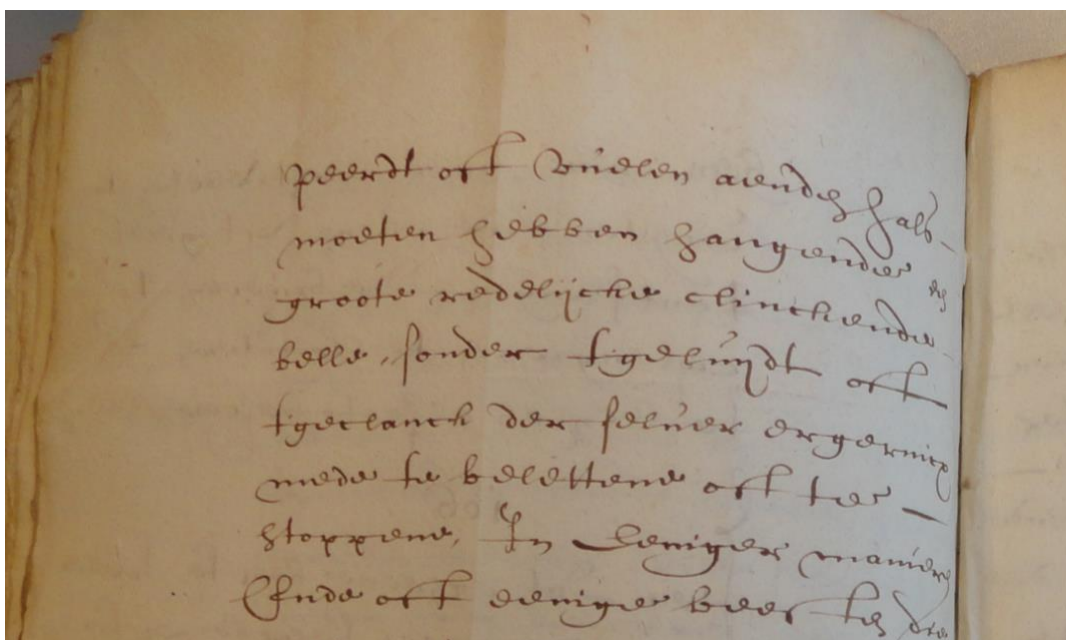 peerdt oft vuelen aenden hals
moeten hebben hangende een
groote redelijcke clinckende
belle, sonder tgeluijdt oft
tgeclanck der seluer ergernicx
mede te belettene oft te
stoppene, In eeniger manieren
Ende oft eenige beesten die